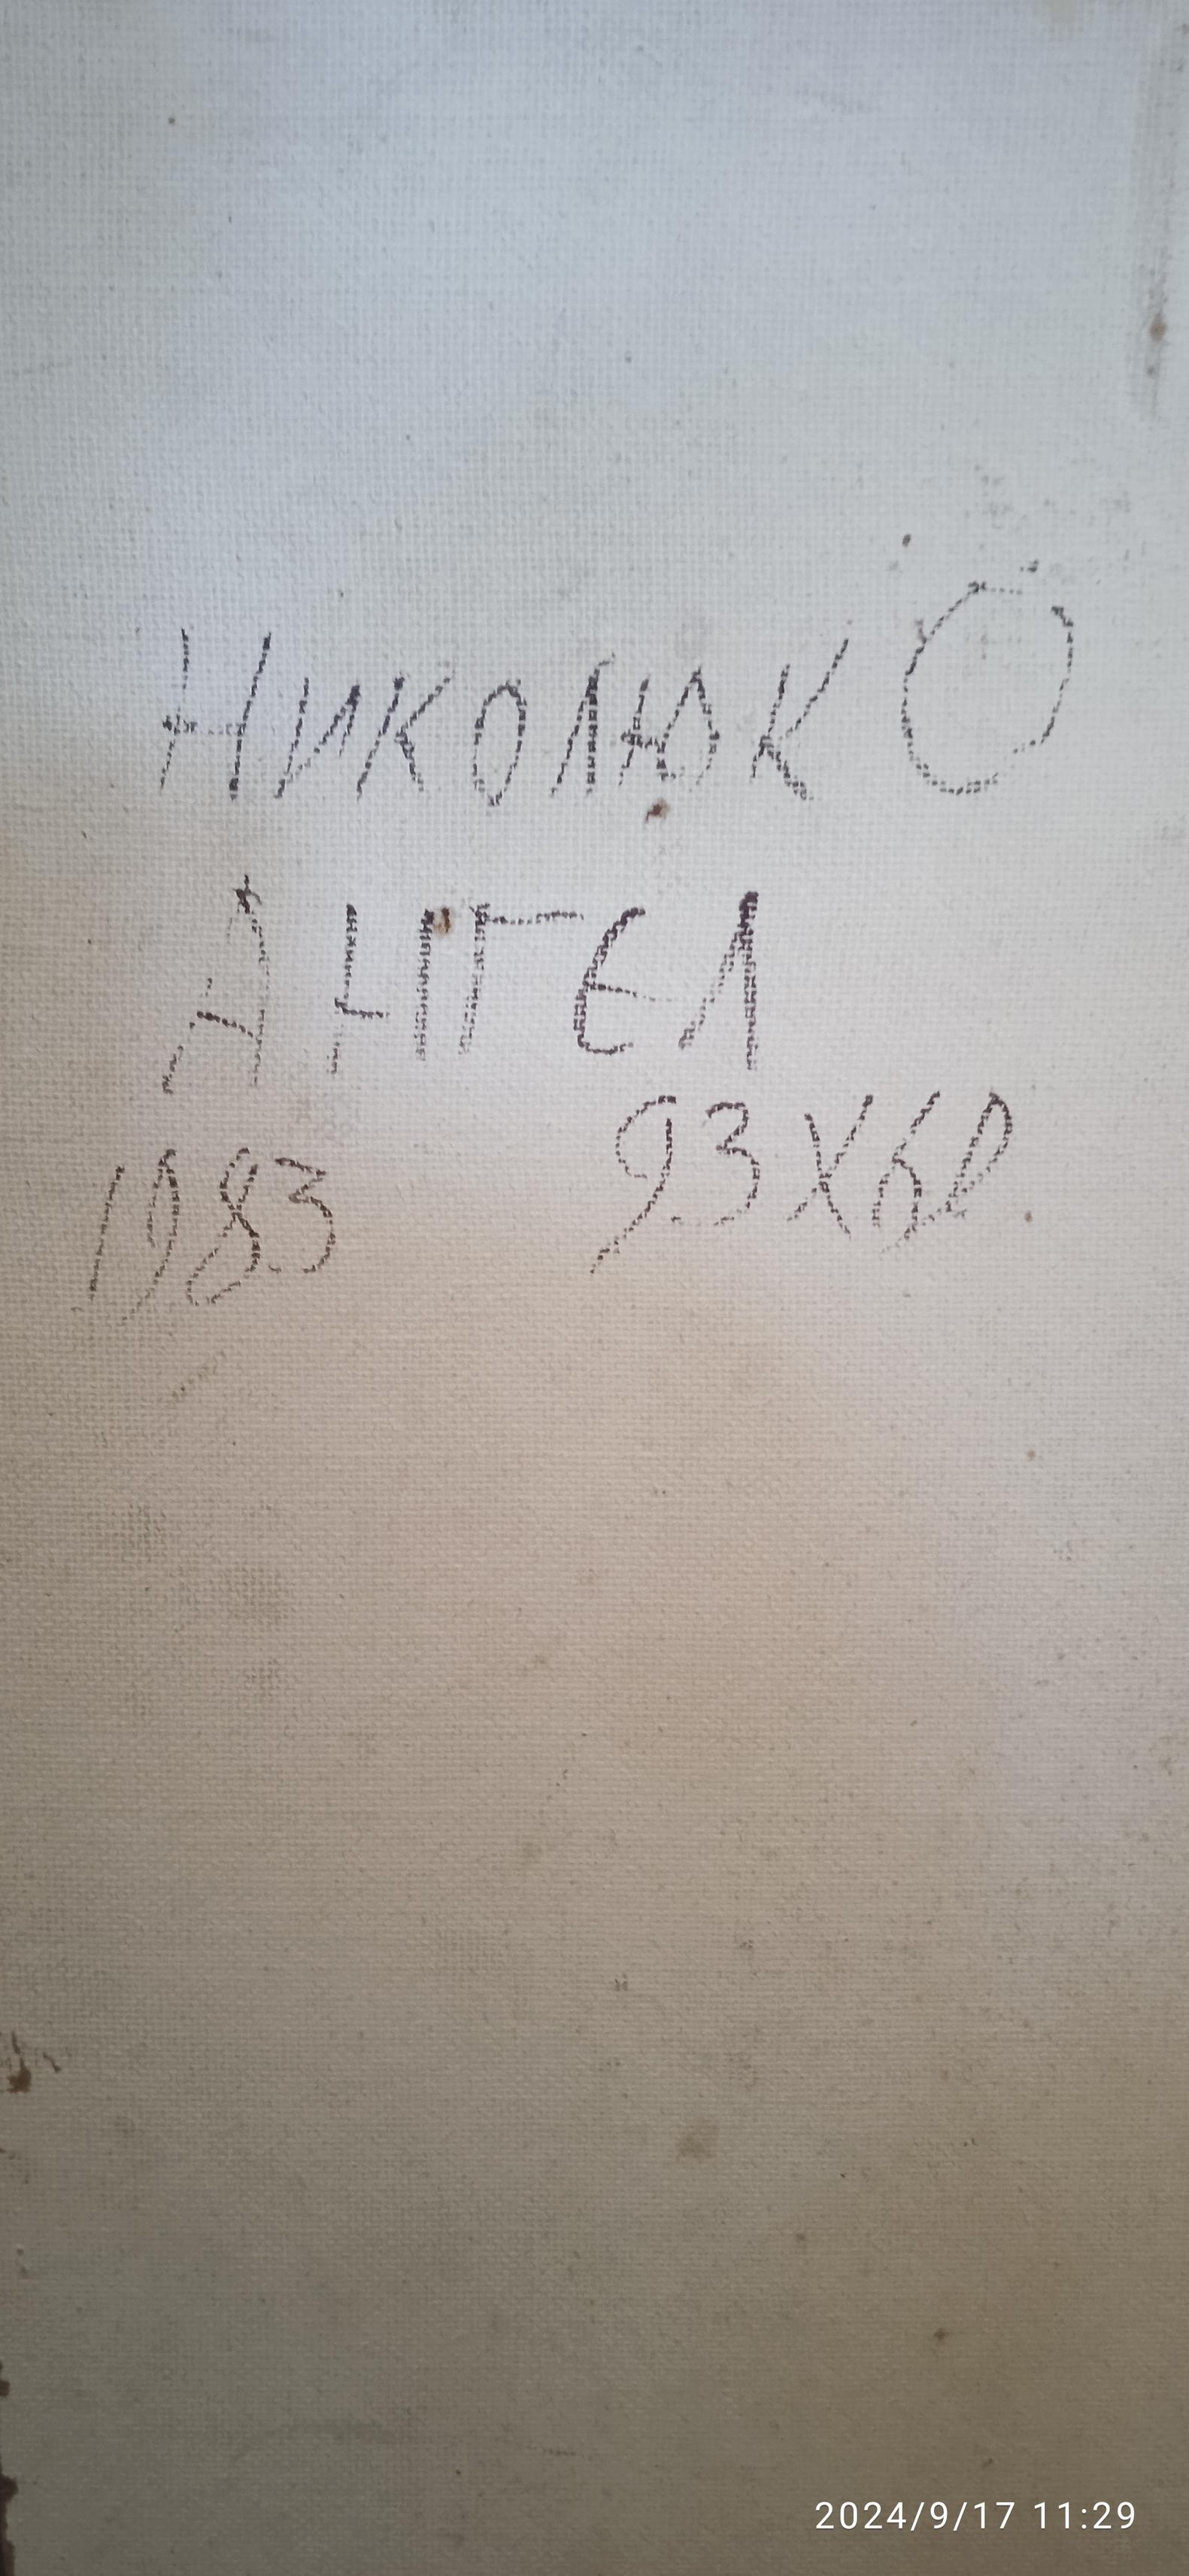 Николюк О
Ангел
1983 93х60
2024/9/17 11:29